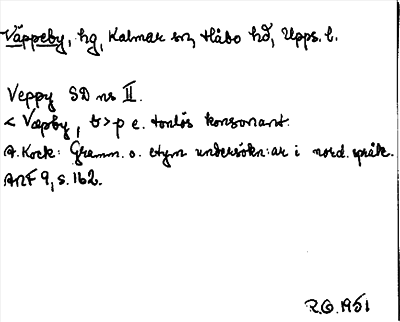 Väppeby, hg, Kalmar sn, Håbo hd, Upps. l.
Veppy SD ns II.
< Væpby, b > p e. tonlös konsonant.
A. Kock: Gramm. o. etym undersökn:ar i nord. språk.
ANF 9, s. 162.
R.O. 1951